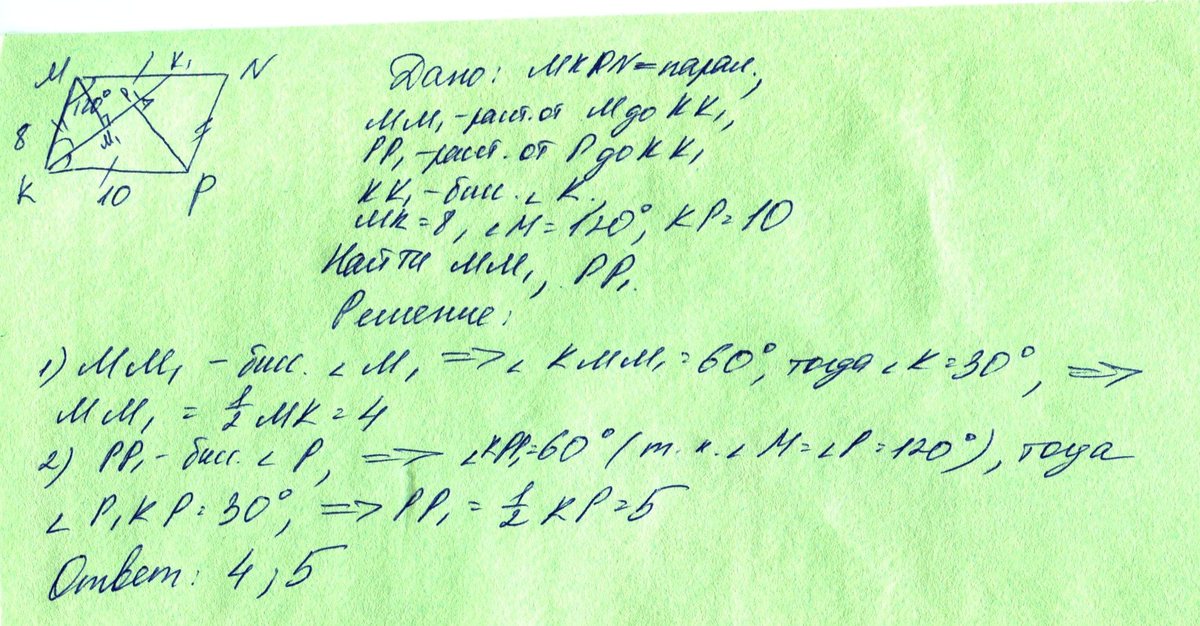 M K₁ N
120°
P₁
8 M₁
K 10 P
Дано: MKPN = парал.,
MM₁ - раст. от M до KK₁,
PP₁ - раст. от P до KK₁
KK₁ - бис. ∠K.
MK = 8, ∠M = 120°, KP = 10
Найти MM₁, PP₁.
Решение:
1) MM₁ - бис. ∠M, => ∠KMM₁ = 60°, тогда ∠K = 30°, =>
MM₁ = 1/2 MK = 4
2) PP₁ - бис. ∠P, => ∠KPP₁ = 60° (т.к. ∠M = ∠P = 120°), тогда
∠P₁KP = 30°, => PP₁ = 1/2 KP = 5
Ответ: 4; 5